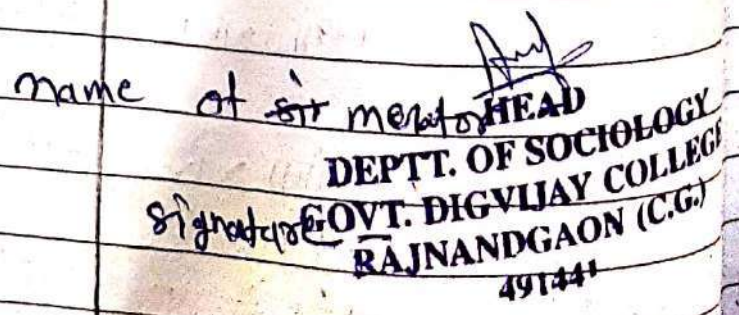 name of sir mentor
HEAD
DEPTT. OF SOCIOLOGY
signature
GOVT. DIGVIJAY COLLEGE
RAJNANDGAON (C.G.)
491441